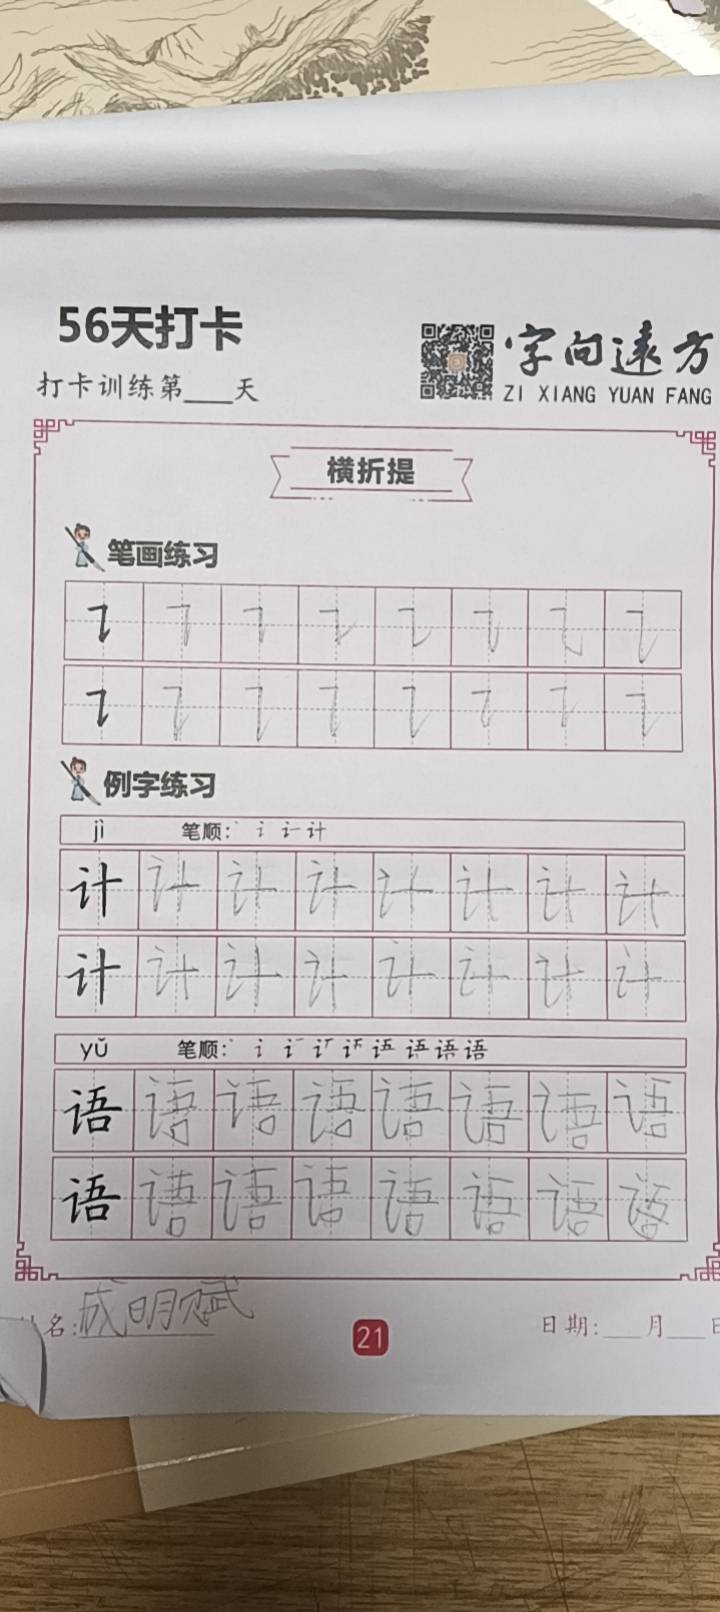 56天打卡
打卡训练第___天
字向远方
ZI XIANG YUAN FANG
横折提
笔画练习
例字练习
jì 笔顺:
计 计 计 计 计 计 计 计
计 计 计 计 计 计 计 计
yǔ 笔顺: 语 语 语
语 语 语 语 语 语 语 语
语 语 语 语 语 语 语 语
名:成明赋
21
日期:___月___日